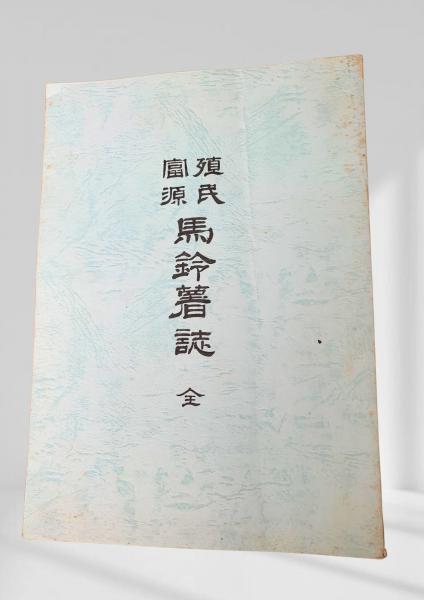 殖民
富源
馬鈴薯誌
全